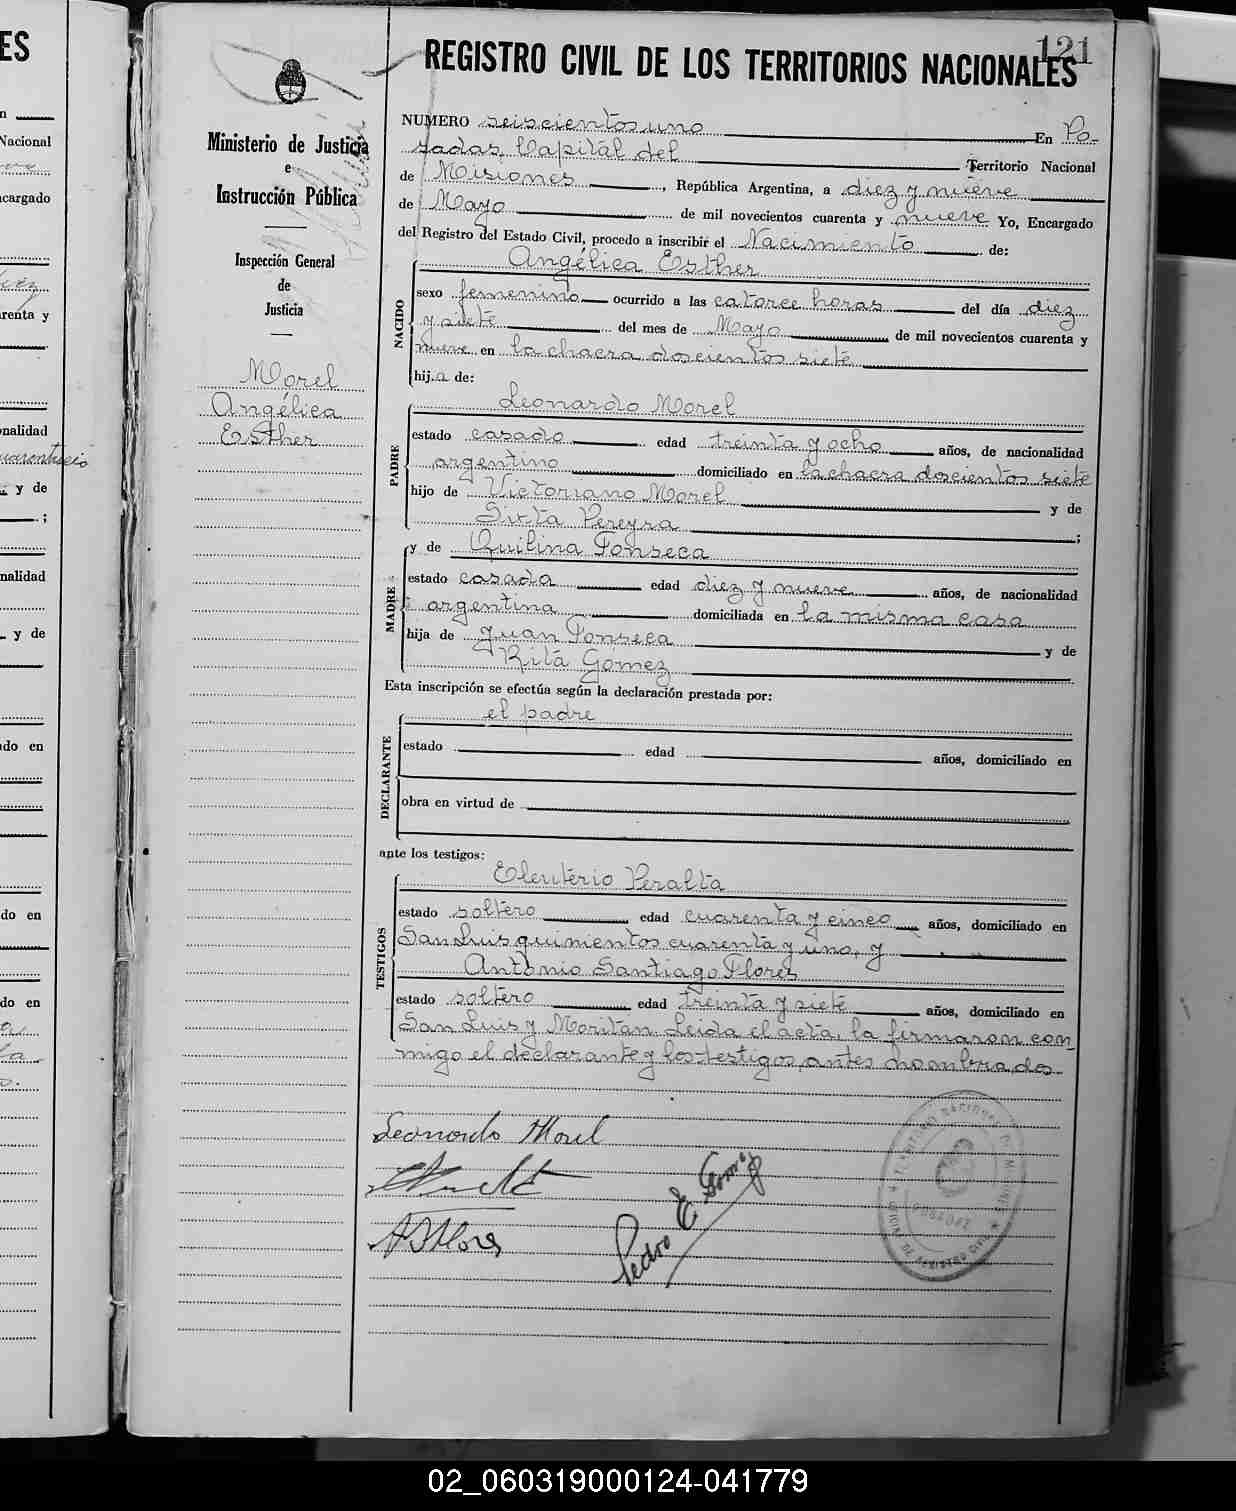 121
REGISTRO CIVIL DE LOS TERRITORIOS NACIONALES
Ministerio de Justicia
e
Instrucción Pública
Inspección General
de
Justicia
Morel
Angélica
Esther
NUMERO seiscientos uno En Po-
sadas, Capital del Territorio Nacional
de Misiones, República Argentina, a diez y nueve
de Mayo de mil novecientos cuarenta y nueve Yo, Encargado
del Registro del Estado Civil, procedo a inscribir el Nacimiento de:
NACIDO
Angélica Esther
sexo femenino ocurrido a las catorce horas del día diez
y siete del mes de Mayo de mil novecientos cuarenta y
nueve en la chacra doscientos siete
hija de:
PADRE
Leonardo Morel
estado casado edad treinta y ocho años, de nacionalidad
argentino domiciliado en la chacra doscientos siete
hijo de Victoriano Morel y de
Sixta Pereyra ;
MADRE
y de Quilina Fonseca
estado casada edad diez y nueve años, de nacionalidad
argentina domiciliada en la misma casa
hija de Juan Fonseca y de
Rita Gomez
Esta inscripción se efectúa según la declaración prestada por:
DECLARANTE
el padre
estado edad años, domiciliado en
obra en virtud de
ante los testigos:
TESTIGOS
Eleuterio Peralta
estado soltero edad cuarenta y cinco años, domiciliado en
San Luis quinientos cuarenta y uno, y
Antonio Santiago Flores
estado soltero edad treinta y siete años, domiciliado en
San Luis y Moritán. Leida el acta, la firmaron con-
migo el declarante y los testigos, antes nombrados.
Leonardo Morel
A S Flores
Pedro E. Gomez
02_060319000124-041779